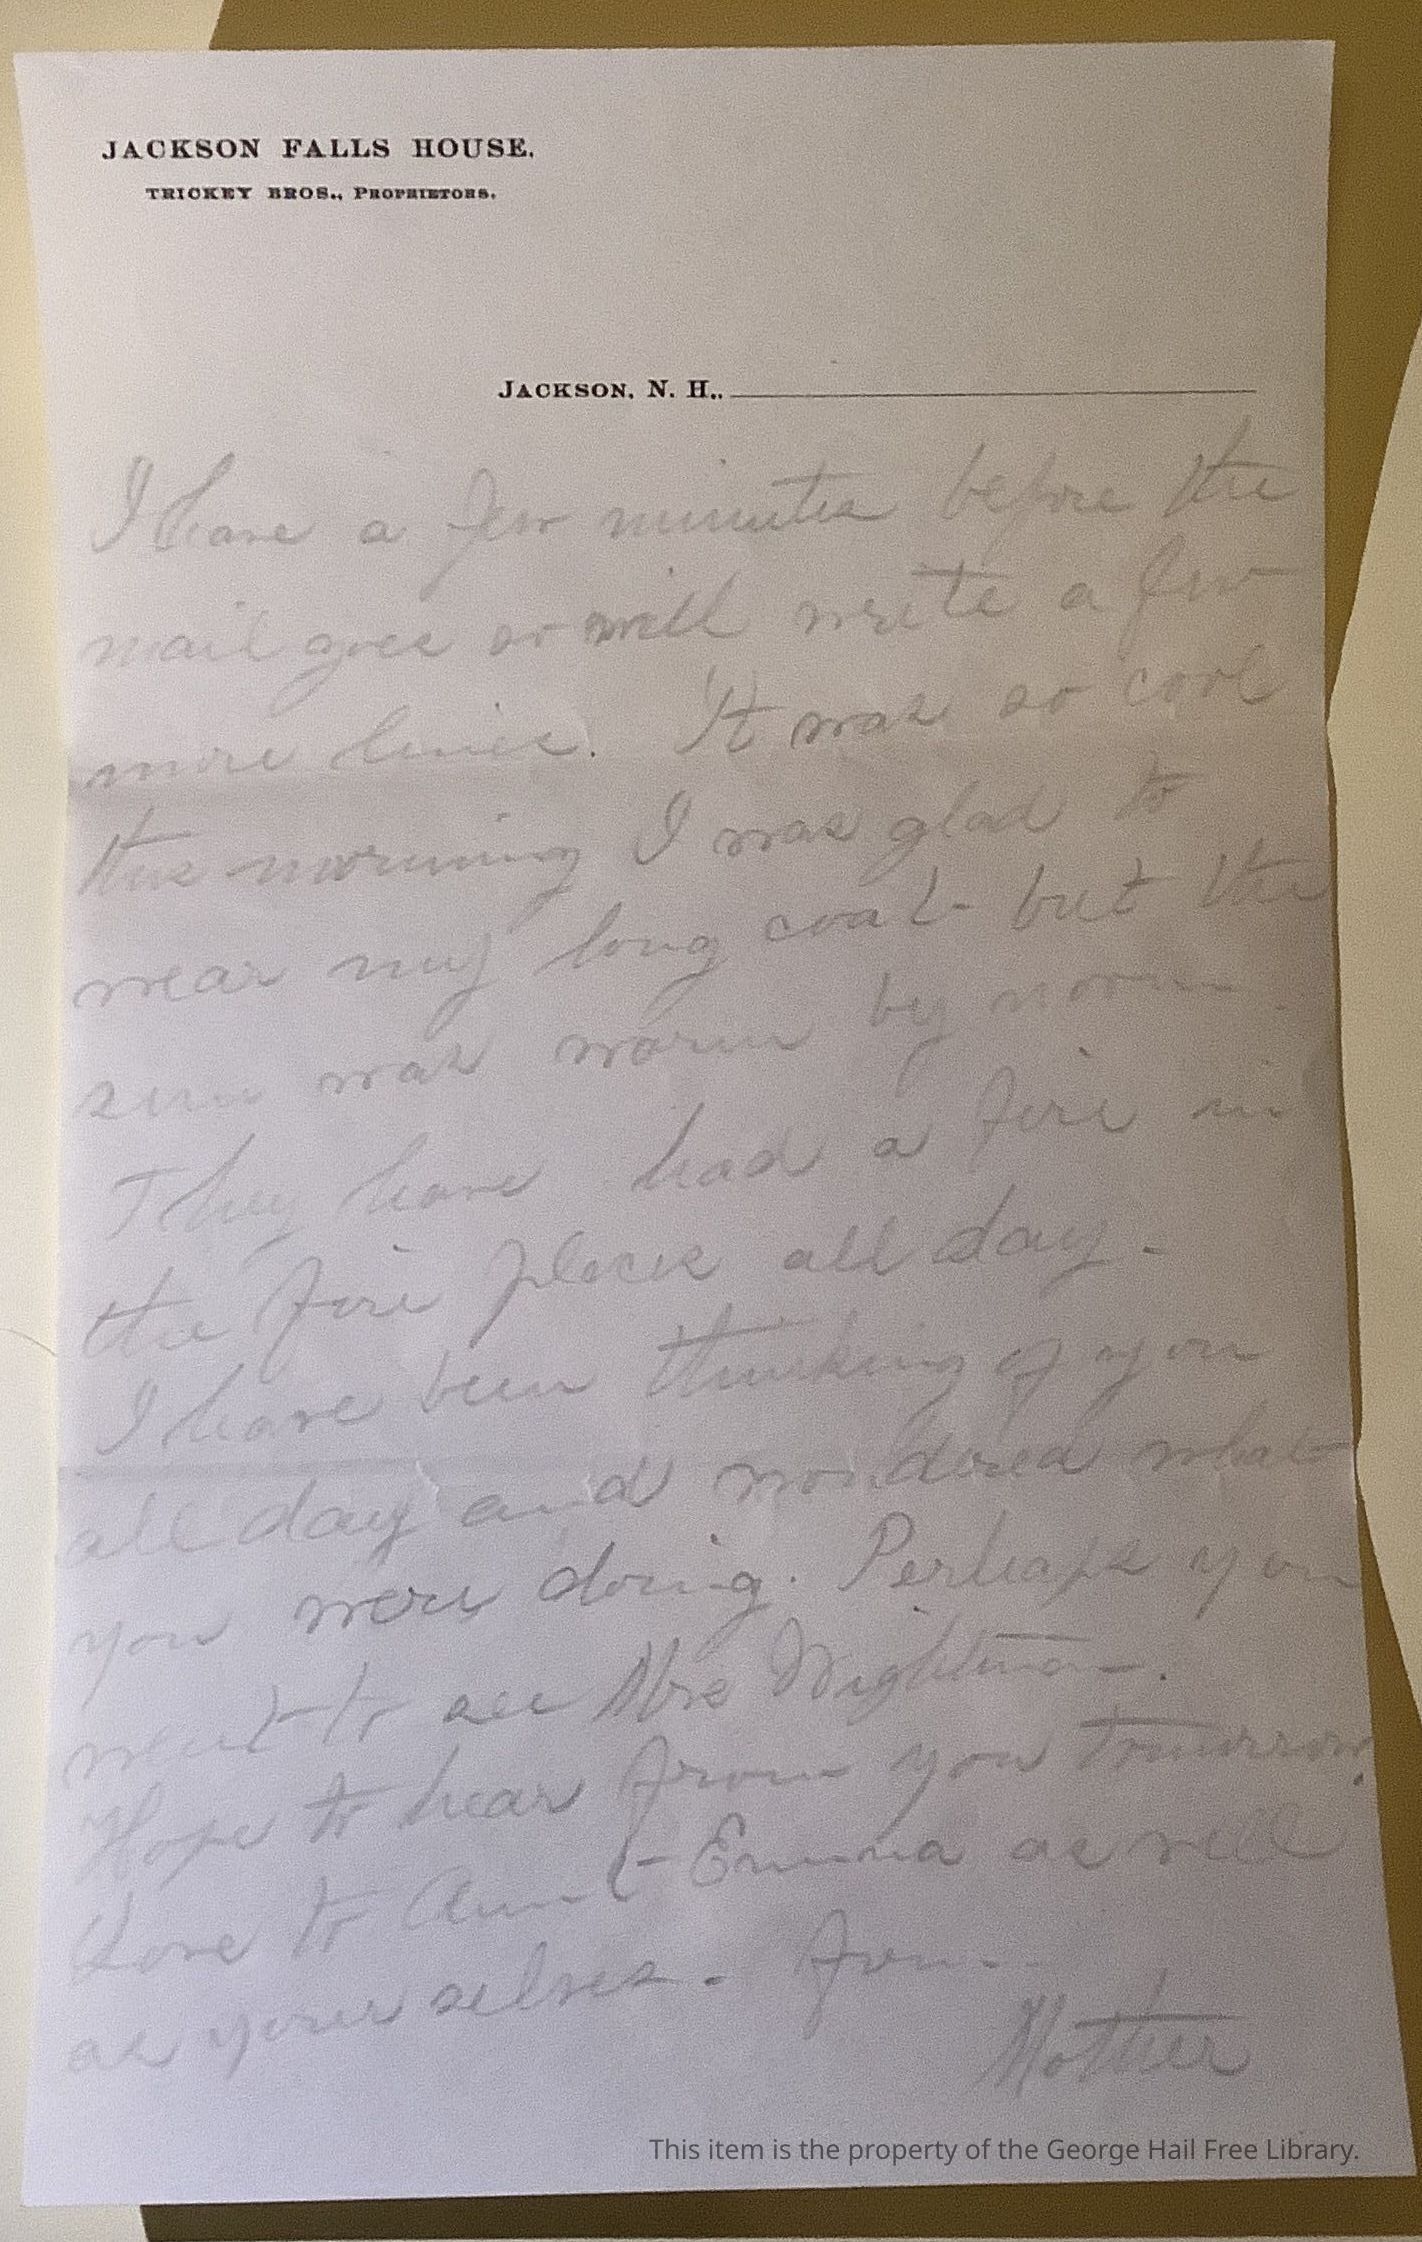 JACKSON FALLS HOUSE.
TRICKEY BROS., PROPRIETORS.
JACKSON, N. H.,
I have a few minutes before the
mail goes so will write a few
more lines. It was so cool
this morning I was glad to
wear my long coat but the
sun was warm by noon.
They have had a fire in
the fire place all day.
I have been thinking of you
all day and wondered what
you were doing. Perhaps you
went to see Mrs Wightman.
Hope to hear from you tomorrow.
Love to Aunt Emma as well
as your selves. From
Mother
This item is the property of the George Hail Free Library.